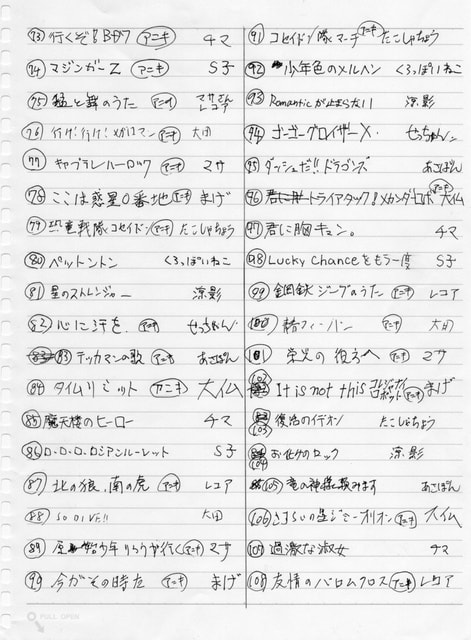 73 行くぞ!BD7 アニキ チマ
74 マジンガーZ アニキ S子
75 猛と舞のうた アニキ
76 行け!行け!メガロマン アニキ 大田
77 キャプテンハーロック アニキ マサ
78 ここは惑星0番地 アニキ まげ
79 恐竜戦隊コセイドン アニキ たこしゃちょう
80 ペットントン くろっぽいねこ
81 星のストレンジャー 涼影
82 心に汗を アニキ せっちゃん
83 テッカマンの歌 アニキ あさぽん
84 タイムリミット アニキ 大仏
85 魔天楼のヒーロー チマ
86 ロ・ロ・ロ・ロシアンルーレット S子
87 北の狼、南の虎 アニキ レコア
88 SO DIVE!! 大田
89 少年 いろりや行く アニキ マサ
90 今がその時だ アニキ まげ
91 コセイドン隊マーチ アニキ たこしゃちょう
92 少年色のメルヘン くろっぽいねこ
93 Romanticが止まらない 涼影
94 ゴーゴーグロイザーX・ せっちゃん
95 ダッシュだ!!ドラゴンズ あさぽん
96 トライアタック!メカンダーロボ アニキ 大仏
97 君に胸キュン。 チマ
98 Lucky Chanceをもう一度 S子
99 鋼鉄ジーグのうた アニキ レコア
100 フィーバン アニキ 大田
101 栄光の彼方へ アニキ マサ
102 It is not this コレジャナイロボット アニキ まげ
103 復活のイデオン たこしゃちょう
104 お化けのロック 涼影
105 竜の神様頼みます あさぽん
106 さすらいの星ジミーオリオン アニキ 大仏
107 過激な淑女 チマ
108 友情のバロムクロス アニキ レコア
PULL OPEN